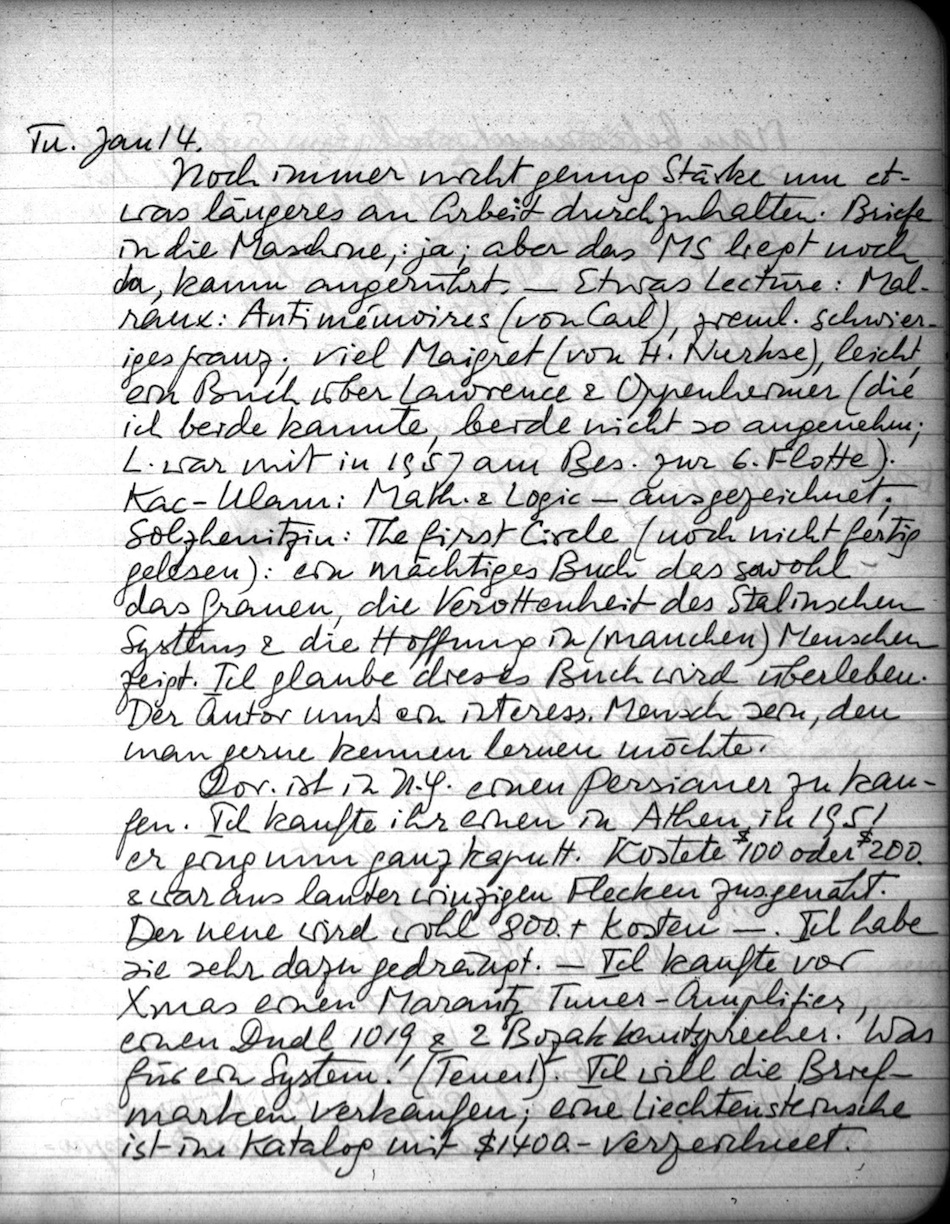 Tu. Jan 14.
Noch immer nicht genug Stärke um et-
was längeres an Arbeit durchzuhalten. Briefe
in die Maschine,: ja; aber das MS liegt noch
da, kaum angerührt. — Etwas Lecture: Mal-
raux: Antimémoires (von Carl), zieml. schwier-
iges franz.; viel Maigret (von H. Nurkse), leicht,
ein Buch über Lawrence & Oppenheimer (die
ich beide kannte, beide nicht so angenehm;
L. war mit in 1957 am Bes. zur 6. Flotte).
Kac-Ulam: Math. & Logic — ausgezeichnet;
Solzhenitzin: The first Circle (noch nicht fertig
gelesen): ein mächtiges Buch das sowohl
das Grauen, die Verottenheit des Stalinschen
Systems & die Hoffnung in (manchen) Menschen
zeigt. Ich glaube dieses Buch wird überleben.
Der Autor muß ein interess. Mensch sein, den
man gerne kennen lernen möchte.
Dor. ist in N.Y. einen Persianer zu kau-
fen. Ich kaufte ihr einen in Athen in 1951
er ging nun ganz kaputt. Kostete $100 oder $200.
& war aus lauter winzigen Flecken zusgenäht.
Der neue wird wohl 800.+ kosten —. Ich habe
sie sehr dazu gedrängt. — Ich kaufte vor
Xmas einen Marantz Tuner-Amplifier,
einen Dual 1019 & 2 Bozak Lautsprecher. Was
für ein System! (Teuer!). Ich will die Brief-
marken verkaufen; eine Liechtensteinsche
ist im Katalog mit $1400.- verzeichnet.